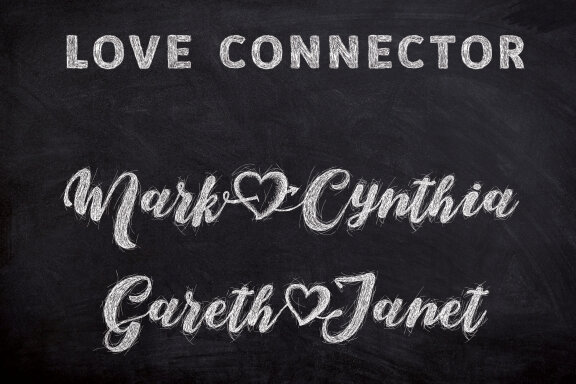 LOVE CONNECTOR
Mark Cynthia
Gareth Janet